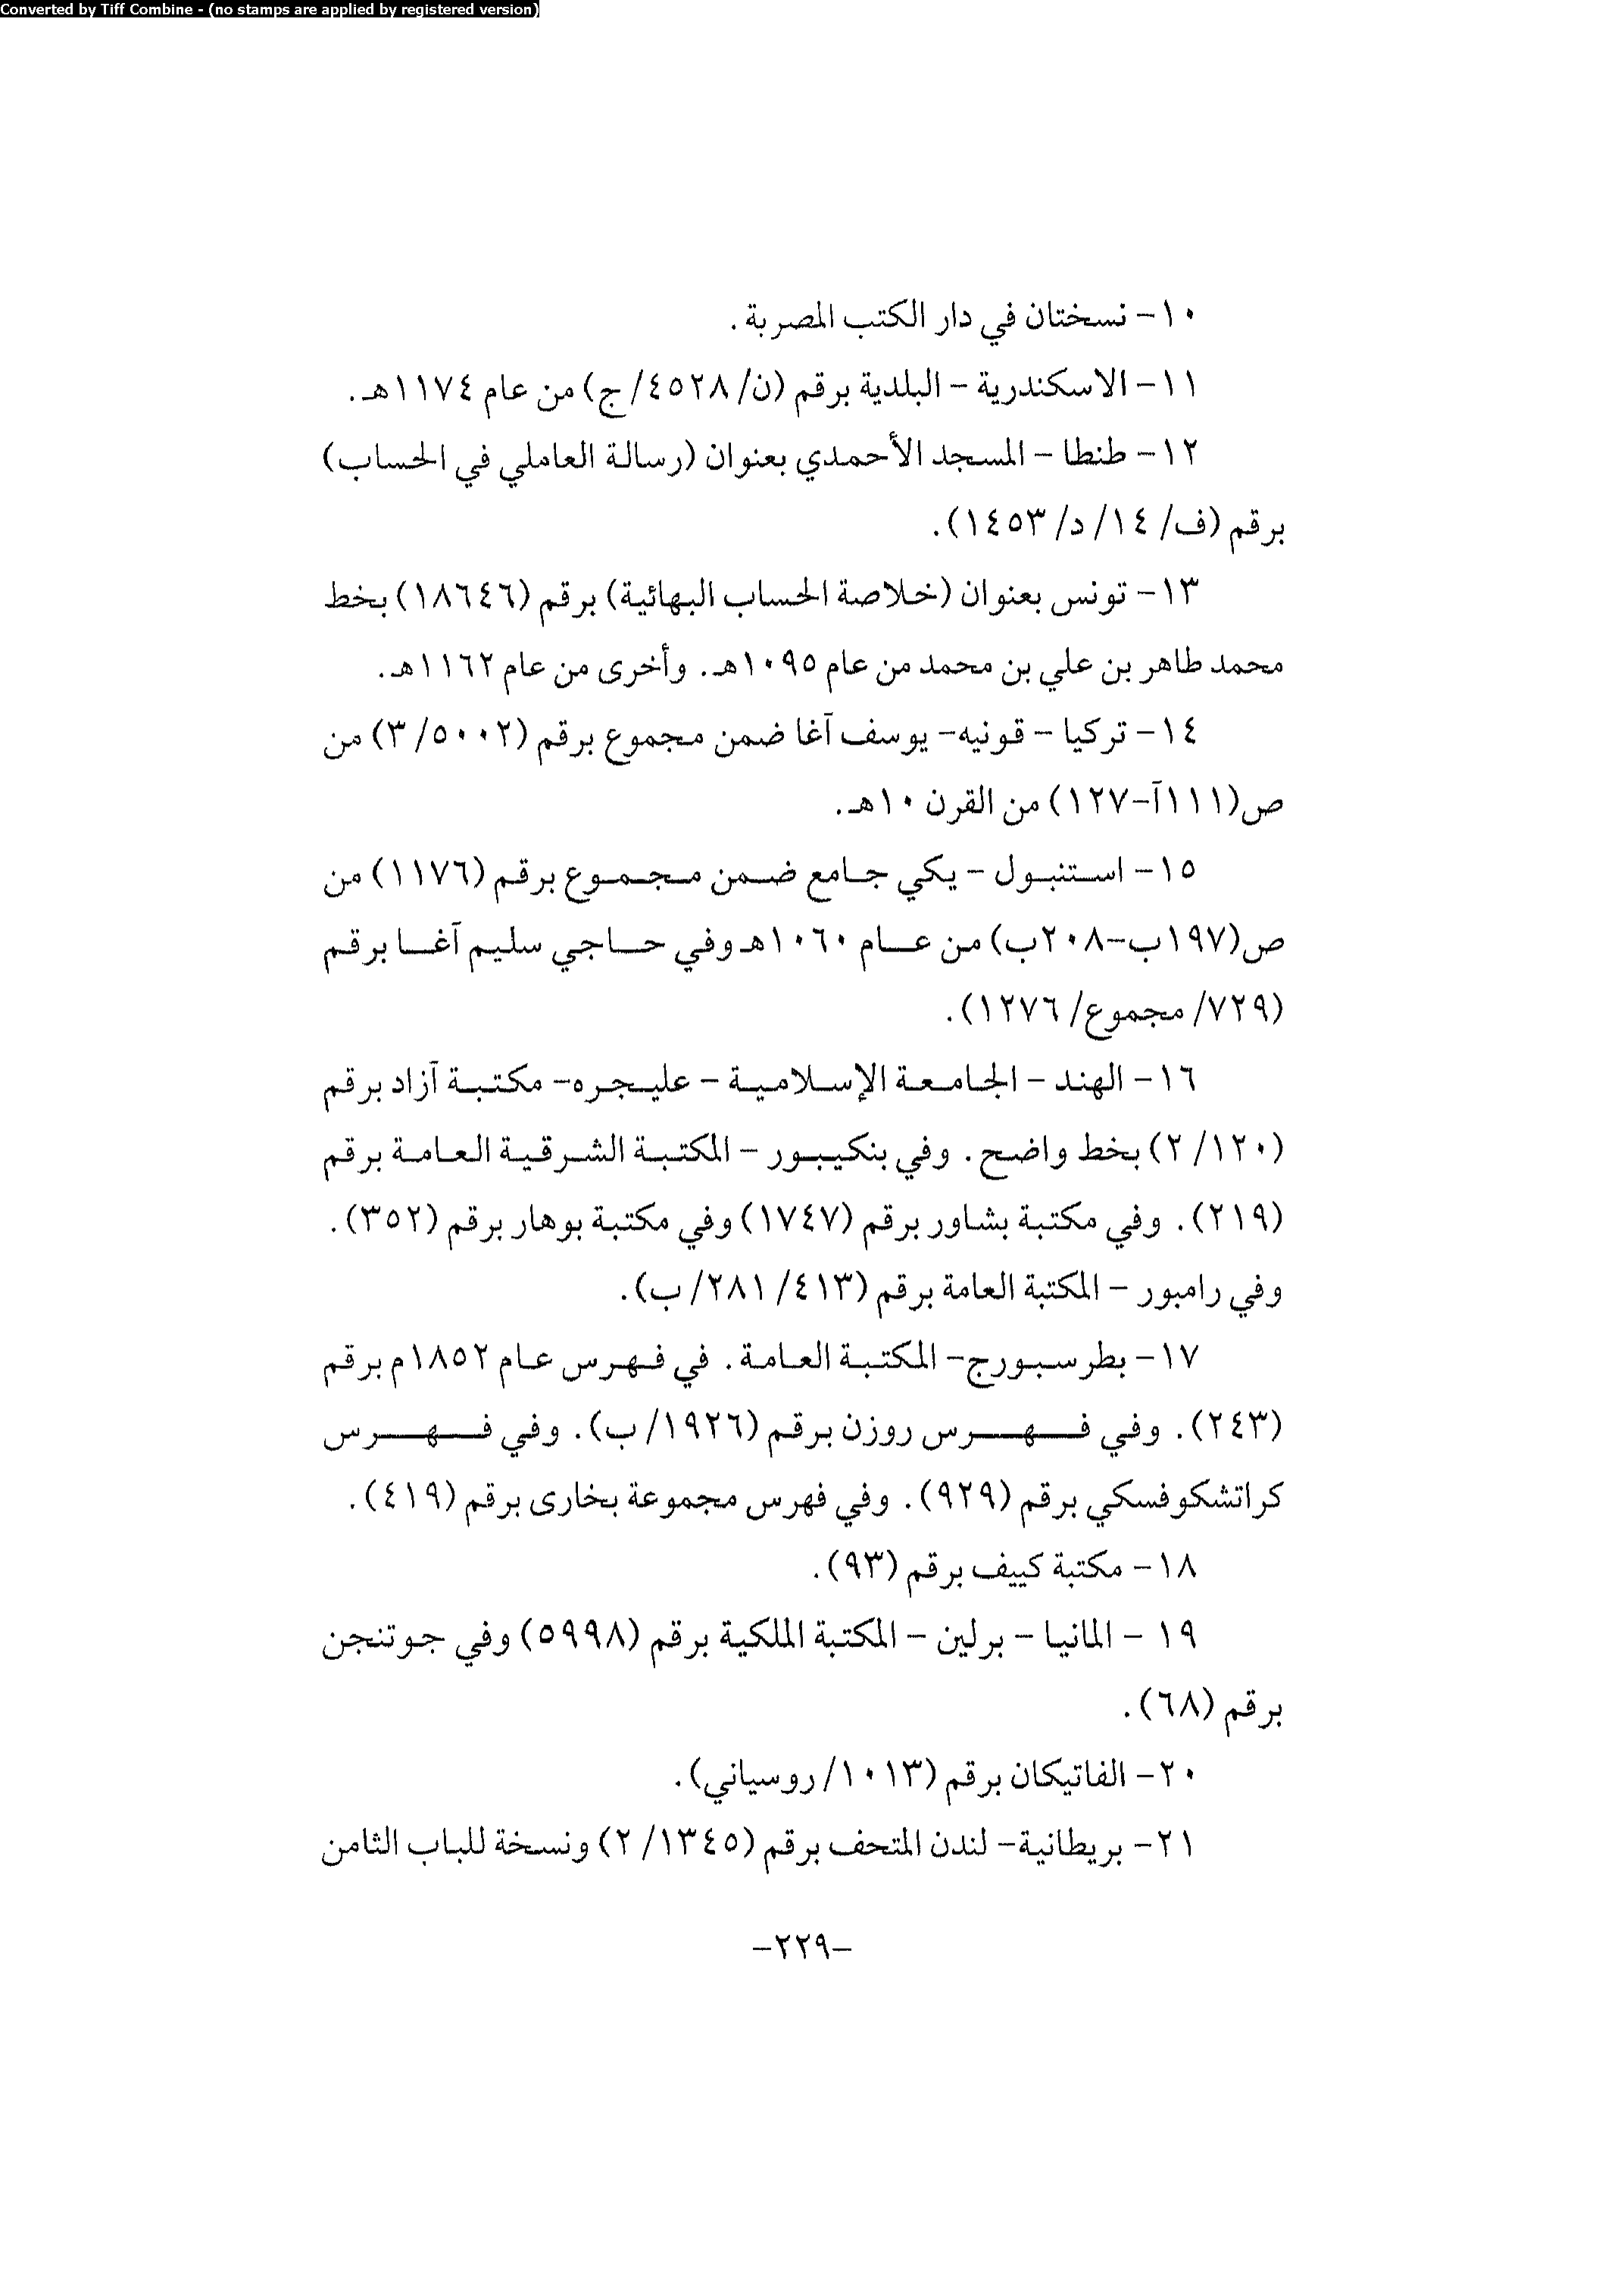 Converted by Tiff Combine - (no stamps are applied by registered version)
١٠- نسختان في دار الكتب المصربة.
١١- الاسكندرية - البلدية برقم (ن/ ٤٥٢٨/ ج) من عام ١١٧٤هـ.
١٢- طنطا - المسجد الأحمدي بعنوان (رسالة العاملي في الحساب)
برقم (ف/ ١٤/ د/ ١٤٥٣).
١٣- تونس بعنوان (خلاصة الحساب البهائية) برقم (١٨٦٤٦) بخط
محمد طاهر بن علي بن محمد من عام ١٠٩٥هـ. وأخرى من عام ١١٦٢هـ.
١٤- تركيا - قونيه- يوسف آغا ضمن مجموع برقم (٥٠٠٢/ ٣) من
ص(١١١آ-١٢٧) من القرن ١٠هـ.
١٥- استنبول - يكي جامع ضمن مجموع برقم (١١٧٦) من
ص(١٩٧ب-٢٠٨ب) من عام ١٠٦٠هـ وفي حاجي سليم آغا برقم
(٧٢٩/ مجموع/ ١٢٧٦).
١٦- الهند - الجامعة الإسلامية - عليجره- مكتبة آزاد برقم
(١٢٠/ ٢) بخط واضح. وفي بنكيبور - المكتبة الشرقية العامة برقم
(٢١٩). وفي مكتبة بشاور برقم (١٧٤٧) وفي مكتبة بوهار برقم (٣٥٢).
وفي رامبور - المكتبة العامة برقم (٤١٣/ ٢٨١/ ب).
١٧- بطرسبورج- المكتبة العامة. في فهرس عام ١٨٥٢م برقم
(٢٤٣). وفي فهرس روزن برقم (١٩٢٦/ ب). وفي فهرس
كراتشكوفسكي برقم (٩٢٩). وفي فهرس مجموعة بخارى برقم (٤١٩).
١٨- مكتبة كييف برقم (٩٣).
١٩ - المانيا - برلين - المكتبة الملكية برقم (٥٩٩٨) وفي جوتنجن
برقم (٦٨).
٢٠- الفاتيكان برقم (١٠١٣/ روسياني).
٢١- بريطانية- لندن المتحف برقم (١٣٤٥/ ٢) ونسخة للباب الثامن
-٢٢٩-